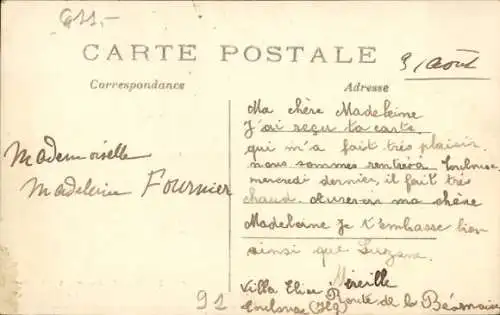 611,-
9/août
CARTE POSTALE
Correspondance
Adresse
Mademoiselle
Madeleine Fournier
Ma chère Madeleine
J'ai reçu ta carte
qui m'a fait très plaisir.
nous sommes rentrés à Toulouse
mercredi dernier, il fait très
chaud. ma chère
Madeleine je t'embrasse bien
ainsi que Suzane.
Mireille
Villa Elise Route de la Béarnaise
Toulouse (Hg)
91